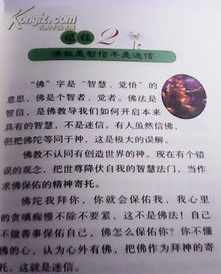 2
佛教是智信不是迷信
“佛”字是“智慧、觉悟”的
意思，佛是个智者、觉者。佛法是
智信，是佛教导我们如何开启本来
具有的智慧，不是迷信。有人虽然信佛，
但把佛陀等同于神，这是极大的误解。
佛教不认同有创造世界的神。现在有个错
误的观念，把世尊降伏自我的智慧法门，当作
求佛保佑的精神寄托。
佛陀我拜你，你就会保佑我，我心里
的贪嗔痴慢不除不要紧，这不是佛法！自己
不做善事保佑自己，佛怎么保佑你？你不懂
佛的心，认为心外有佛，把佛作为拜神的寄
托，这就是迷信。